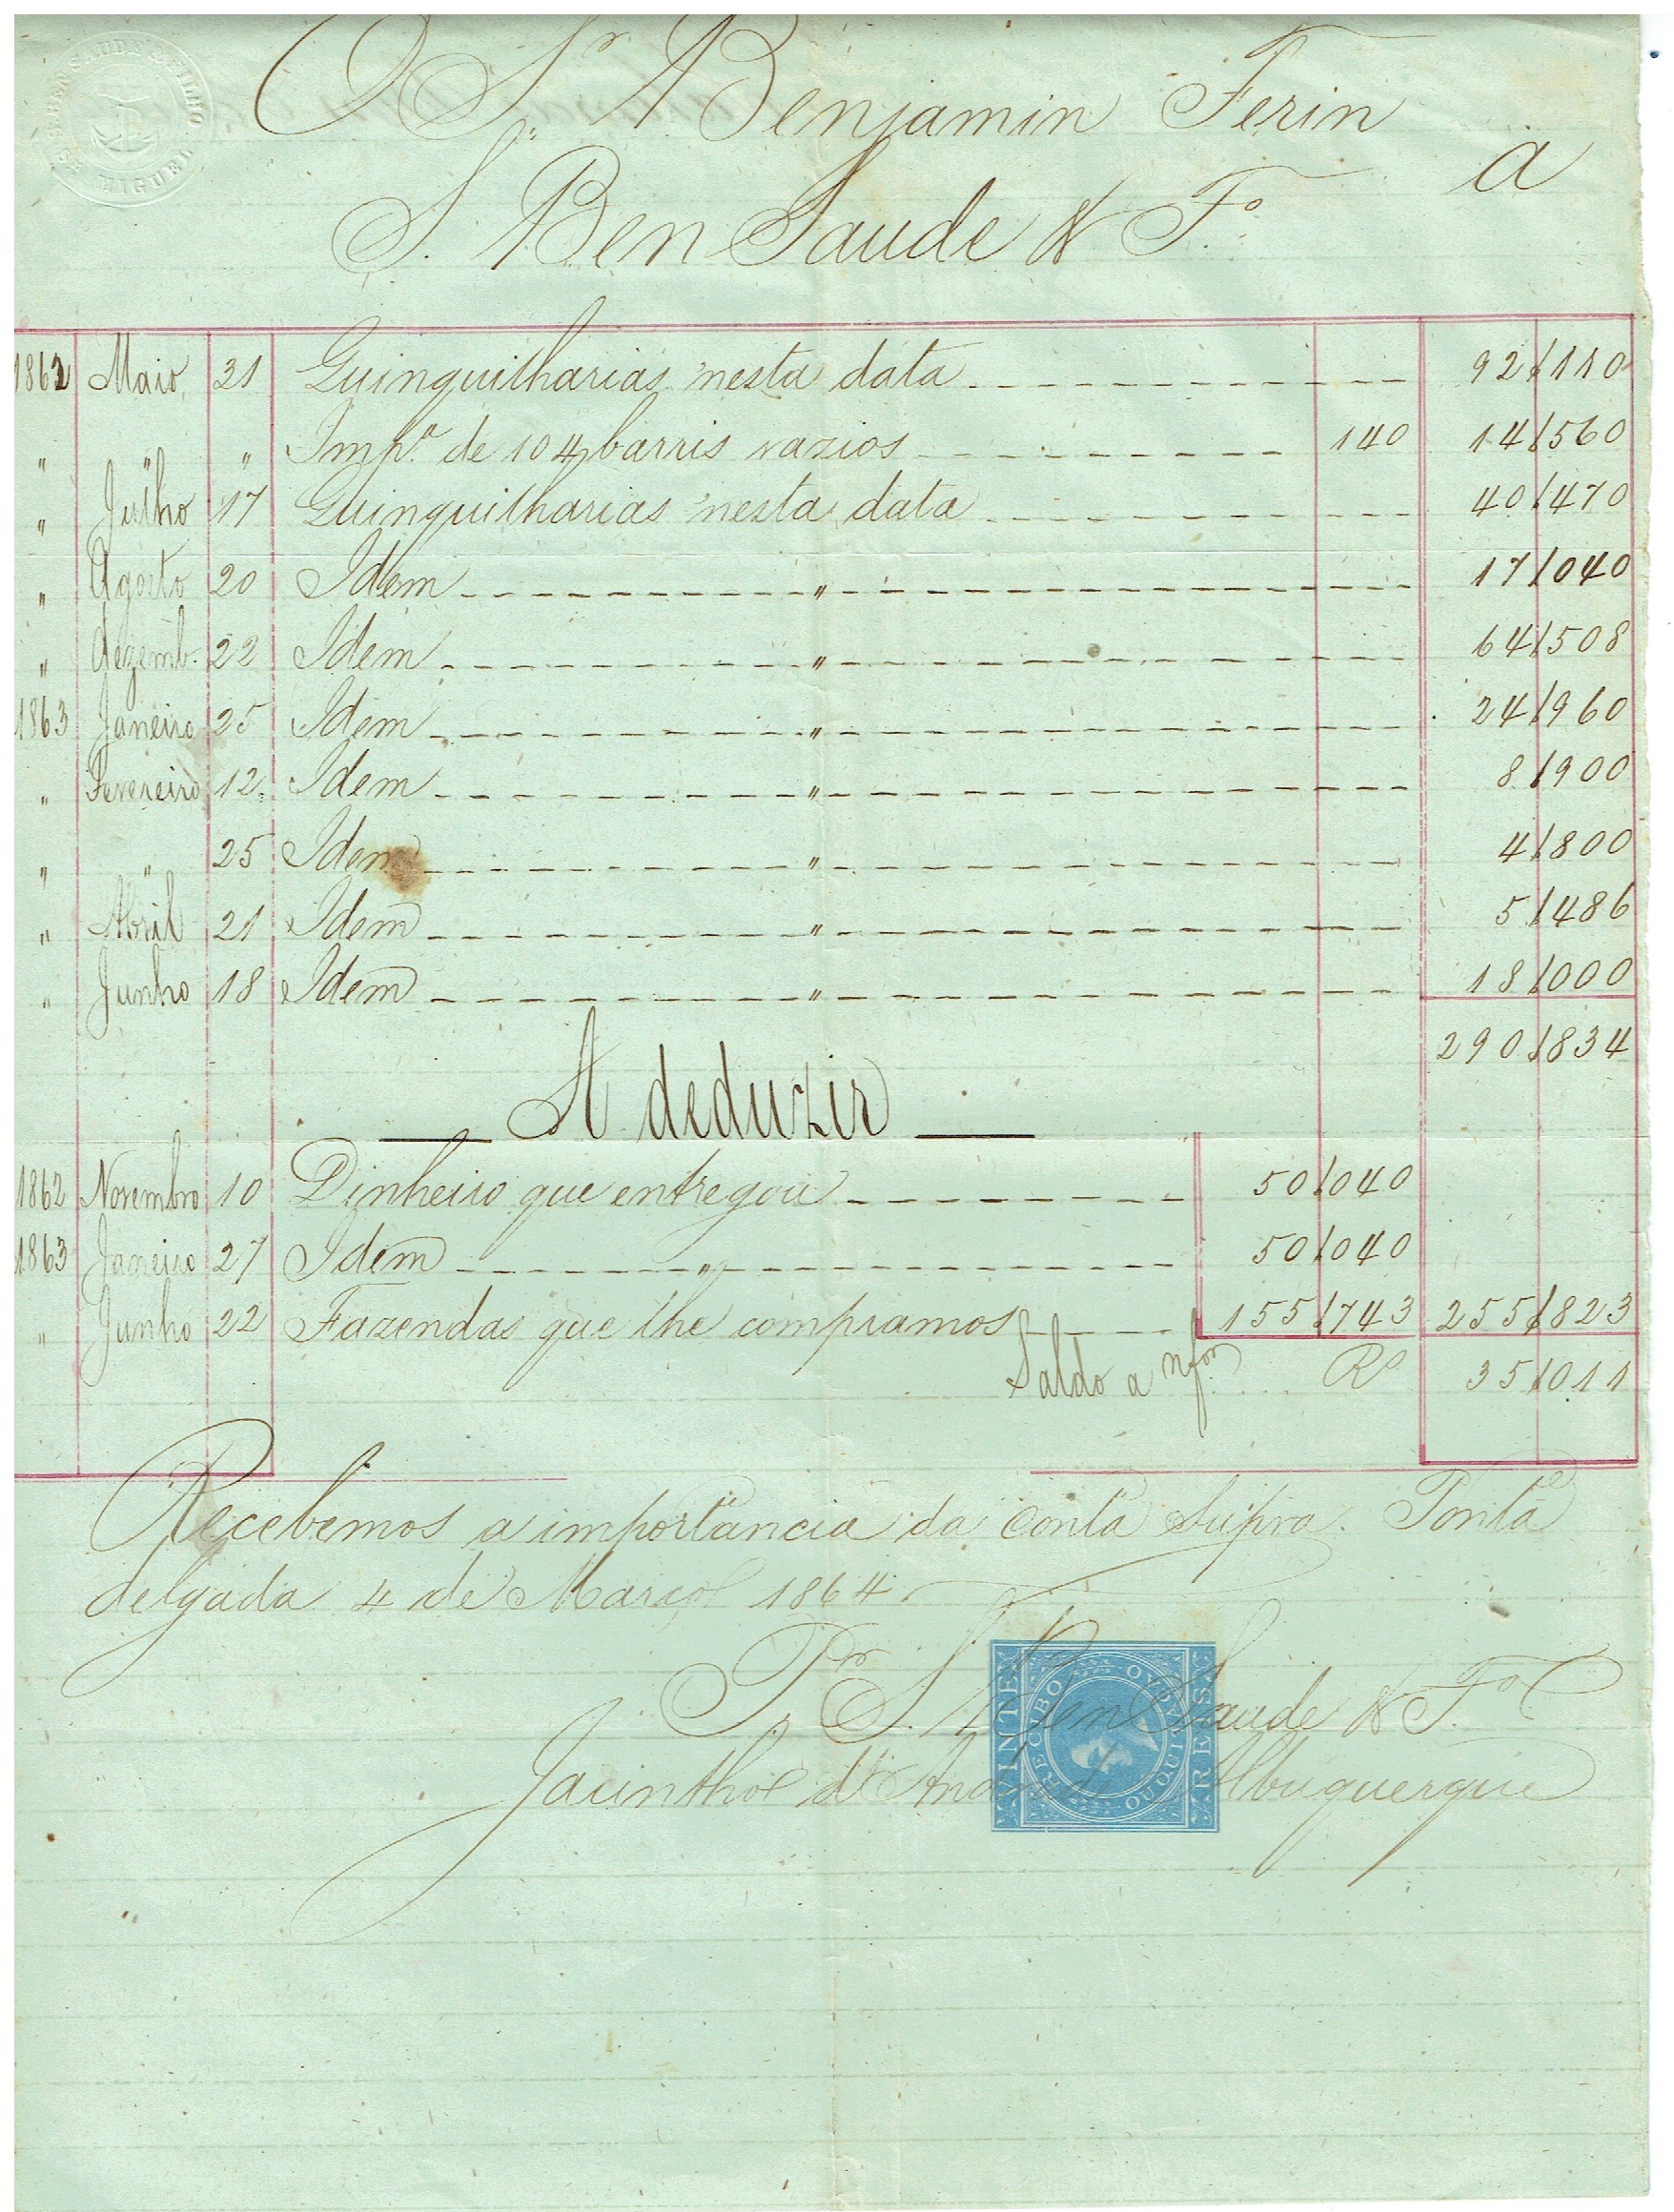 S. BENSAUDE & FILHO
Sº MIGUEL
O Sr. Benjamin Ferin
a
S. BenSaude & Fº.
1862 Maio 31 Quinquilharias nesta data 92$110
" " " Impa. de 104 barris vazios 140 14$560
" Julho 17 Quinquilharias nesta data 40$470
" Agosto 20 Idem " 17$040
" Dezemb. 22 Idem " 64$508
1863 Janeiro 25 Idem " 24$960
" Fevereiro 12 Idem " 8$900
" " 25 Idem " 4$800
" Abril 21 Idem " 5$486
" Junho 18 Idem " 18$000
290$834
A deduzir
1862 Novembro 10 Dinheiro que entregou 50$040
1863 Janeiro 27 Idem " 50$040
" Junho 22 Fazendas que lhe compramos 155$743 255$823
Saldo a n/for Rs 35$011
Recebemos a importancia da conta supra. Ponta
delgada 4 de Março 1864.
Pr S. BenSaude & Fº.
Jacintho d'Andrade Albuquerque
VINTE
RECIBO
OU QUITAÇÃO
REIS